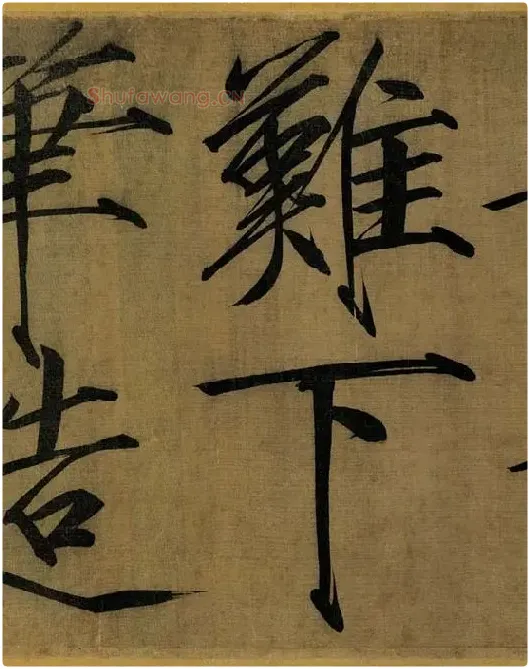 難下
筆造
Shufawang.CN